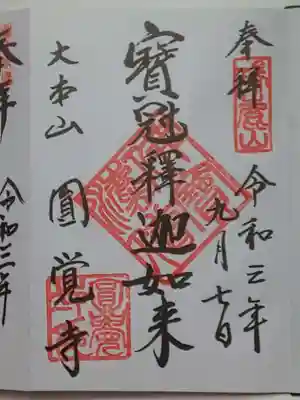 奉拝
令和三年
九月七日
寶冠釋迦如来
大本山
圓覺寺
奉拝
令和三年